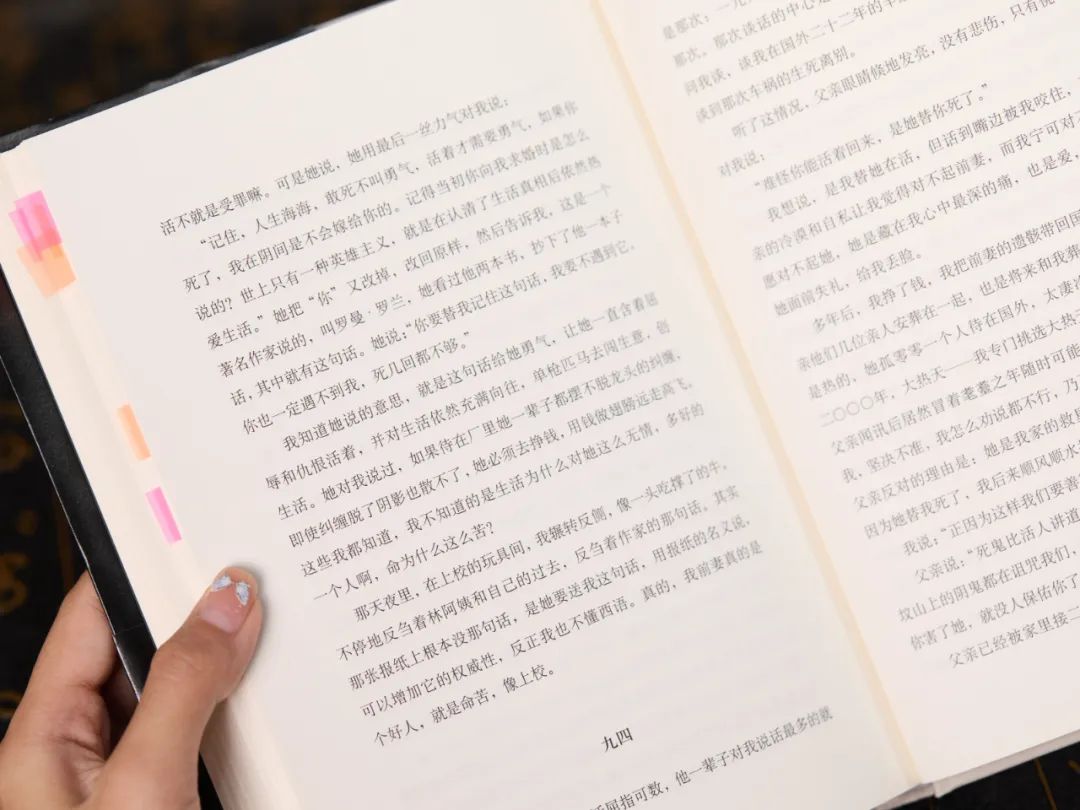 活不就是受罪嘛。可是她说，她用最后一丝力气对我说：
“记住，人生海海，敢死不叫勇气，活着才需要勇气，如果你
死了，我在阴间是不会嫁给你的。记得当初你问我求婚时是怎么
说的？世上只有一种英雄主义，就是在认清了生活真相后依然热
爱生活。”她把“你”又改掉，改回原样，然后告诉我，这是一个
著名作家说的，叫罗曼·罗兰，她看过他两本书，抄下了他一本子
话，其中就有这句话。她说：“你要替我记住这句话，我要不遇到它，
你也一定遇不到我，死几回都不够。”
我知道她说的意思，就是这句话给她勇气，让她一直含着屈
辱和仇恨活着，并对生活依然充满向往，单枪匹马去闯生意，创
生活。她对我说过，如果待在厂里她一辈子都摆不脱龙头的纠缠，
即使纠缠脱了阴影也散不了，她必须去挣钱，用钱做翅膀远走高飞。
这些我都知道，我不知道的是生活为什么对她这么无情，多好的
一个人啊，命为什么这么苦？
那天夜里，在上校的玩具间，我辗转反侧，像一头吃撑了的牛，
不停地反刍着林阿姨和自己的过去，反刍着作家的那句话。其实
那张报纸上根本没那句话，是她要送我这句话，用报纸的名义说，
可以增加它的权威性，反正我也不懂西语。真的，我前妻真的是
个好人，就是命苦，像上校。
九四
屈指可数，他一辈子对我说话最多的就
是那次：一九
那次，那次谈话的中心是
问我谈，谈我在国外二十二年的辛
谈到那次车祸的生死离别。
听了这情况，父亲眼睛倏地发亮，没有悲伤，只有
对我说：
“难怪你能活着回来，是她替你死了。”
我想说，是我替她在活，但话到嘴边被我咬住，
亲的冷漠和自私让我觉得对不起前妻，而我宁可对
愿对不起她，她是藏在我心中最深的痛，也是爱，
她面前失礼，给我丢脸。
多年后，我挣了钱，我把前妻的遗骸带回国
亲他们几位亲人安葬在一起，也是将来和我葬
是热的，她孤零零一个人待在国外，太凄
二〇〇〇年，大热天——我专门挑选大热
父亲闻讯后居然冒着耄耋之年随时可能
我，坚决不准，我怎么劝说都不行，乃
父亲反对的理由是：她是我家的救
因为她替我死了，我后来顺风顺水
我说：“正因为这样我们要善
父亲说：“死鬼比活人讲道
坟山上的阴鬼都在诅咒我们，
你害了她，就没人保佑你了
父亲已经被家里接二